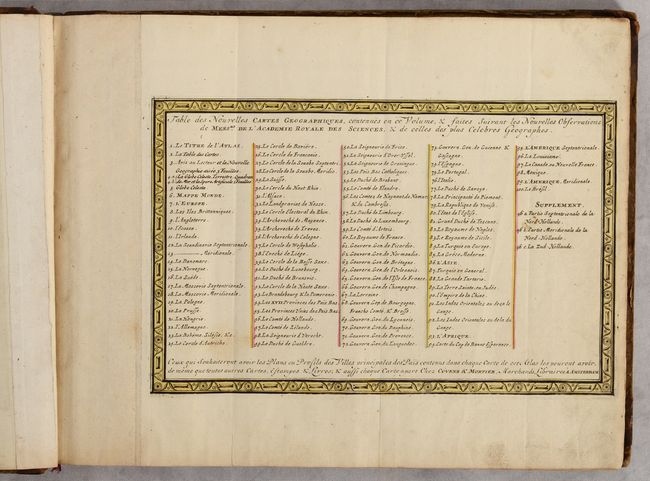 Table des Nouvelles CARTES GEOGRAPHIQUES, contenues en ce Volume, & faites Suivant les Nouvelles Observations
de MESS.rs DE L'ACADEMIE ROYALE DES SCIENCES, & de celles des plus Celebres Geographes.
1. Le TITRE de l'ATLAS.
2. La Table des Cartes
3. Avis au Lecteur et la Nouvelle
Geographie
5. Globe Celeste
6. MAPPE MONDE.
7. L'EUROPE.
8. Les Iles Britanniques.
9. l'Angleterre
10. l'Ecosse.
11. l'Irlande.
12. La Scandinavie Septentrionale.
13. Meridionale.
14. La Danemarc
15. La Norwegue
16. La Suede.
17. La Moscovie Septentrionale.
18. La Moscovie Meridionale.
19. La Pologne
20. La Prusse.
21. La Hongrie
22. l'Allemagne.
23. La Boheme, Silesie, &c.
24. Le Cercle d'Autriche.
25. Le Cercle de Baviere.
26. Le Cercle de Franconie.
27. Le Cercle de la Souabe Septentri.
28. Le Cercle de la Souabe Meridio.
29. La Suisse
30. Le Cercle du Haut Rhin
31. l'Alsace.
32. Le Landgraviat de Hesse.
33. Le Cercle Electoral du Rhin.
34. L'Archeveché de Mayence.
35. L'Archeveché de Treves.
36. L'Archeveché de Cologne.
37. Le Cercle de Westphalie.
38. l'Eveché de Liége.
39. Le Cercle de la Basse Saxe.
40. Le Duché de Lunebourg
41. Le Duché de Brunswic.
42. Le Cercle de la Haute Saxe.
43. Le Brandebourg & la Pomeranie.
44. Les XVII Provinces des Pais Bas.
45. Les Provinces Unies des Pais Bas.
46. Le Comté de Hollande.
47. Le Comté de Zelande.
48. La Seigneurie d'Utrecht.
49. Le Duché de Gueldre.
50. La Seigneurie de Frise
51. La Seigneurie d'Over-Yssel.
52. La Seigneurie de Groningue.
53. Les Pais Bas Catholiques.
54. Le Duché de Brabant.
55. Le Comté de Flandre.
56. Les Comtez de Haynaut, de Namur,
& de Cambresis.
57. Le Duché de Limbourg.
58. Le Duché de Luxembourg.
59. Le Comté d'Artois.
60. Le Royaume de France.
61. Gouvern. Gen. de Picardie.
62. Gouvern. Gen. de Normandie.
63. Gouvern. Gen. de Bretagne.
64. Gouvern. Gen. de l'Orleanois.
65. Gouvern. Gen. de l'Isle de France.
66. Gouvern. Gen. de Champagne.
67. La Lorraine
68. Gouvern. Gen. de Bourgogne,
Franche Comté, & Bresse
69. Gouvern. Gen. du Lyonnois.
70. Gouvern. Gen. du Dauphiné.
71. Gouvern. Gen. de Provence.
72. Gouvern. Gen. du Languedoc.
73. Gouvern. Gen. de Guienne &
Gascogne.
74. l'Espagne.
75. Le Portugal.
76. l'Italie.
77. Le Duché de Savoye
78. La Principauté de Piemont.
79. La Republique de Venise.
80. l'Etat de l'Eglise.
81. Grand Duché de Toscane.
82. Le Royaume de Naples.
83. Le Royaume de Sicile.
84. La Turquie en Europe.
85. La Gréce, Moderne.
86. l'ASIE.
87. Turquie en General.
88. La Grande Tartarie.
89. La Terre Sainte, ou Judée
90. l'Empire de la Chine
91. Les Indes Orientales au dela le
Gange.
92. Les Indes Orientales au dela du
Gange
93. l'AFRIQUE.
94. Carte du Cap de Bonne Esperance.
95. L'AMERIQUE Septentrionale.
96. La Louisiane.
97. Le Canada ou Nouvelle France.
98. Mexique
99. L'AMERIQUE Meridionale
100. Le Bresil
SUPPLEMENT.
Partie Septentrionale de la
Nord-Hollande.
Partie Meridionale de la
Nord-Hollande.
La Zud-Hollande.
Ceux qui souhaiteront avoir les Plans ou Profils des Villes principales des Pais contenus dans chaque Carte de cet Atlas les pourront avoir,
de même que toutes autres Cartes, Estampes & Livres; & aussi chaque Carte à part Chez COVENS & MORTIER, Marchands Libraires à AMSTERDAM